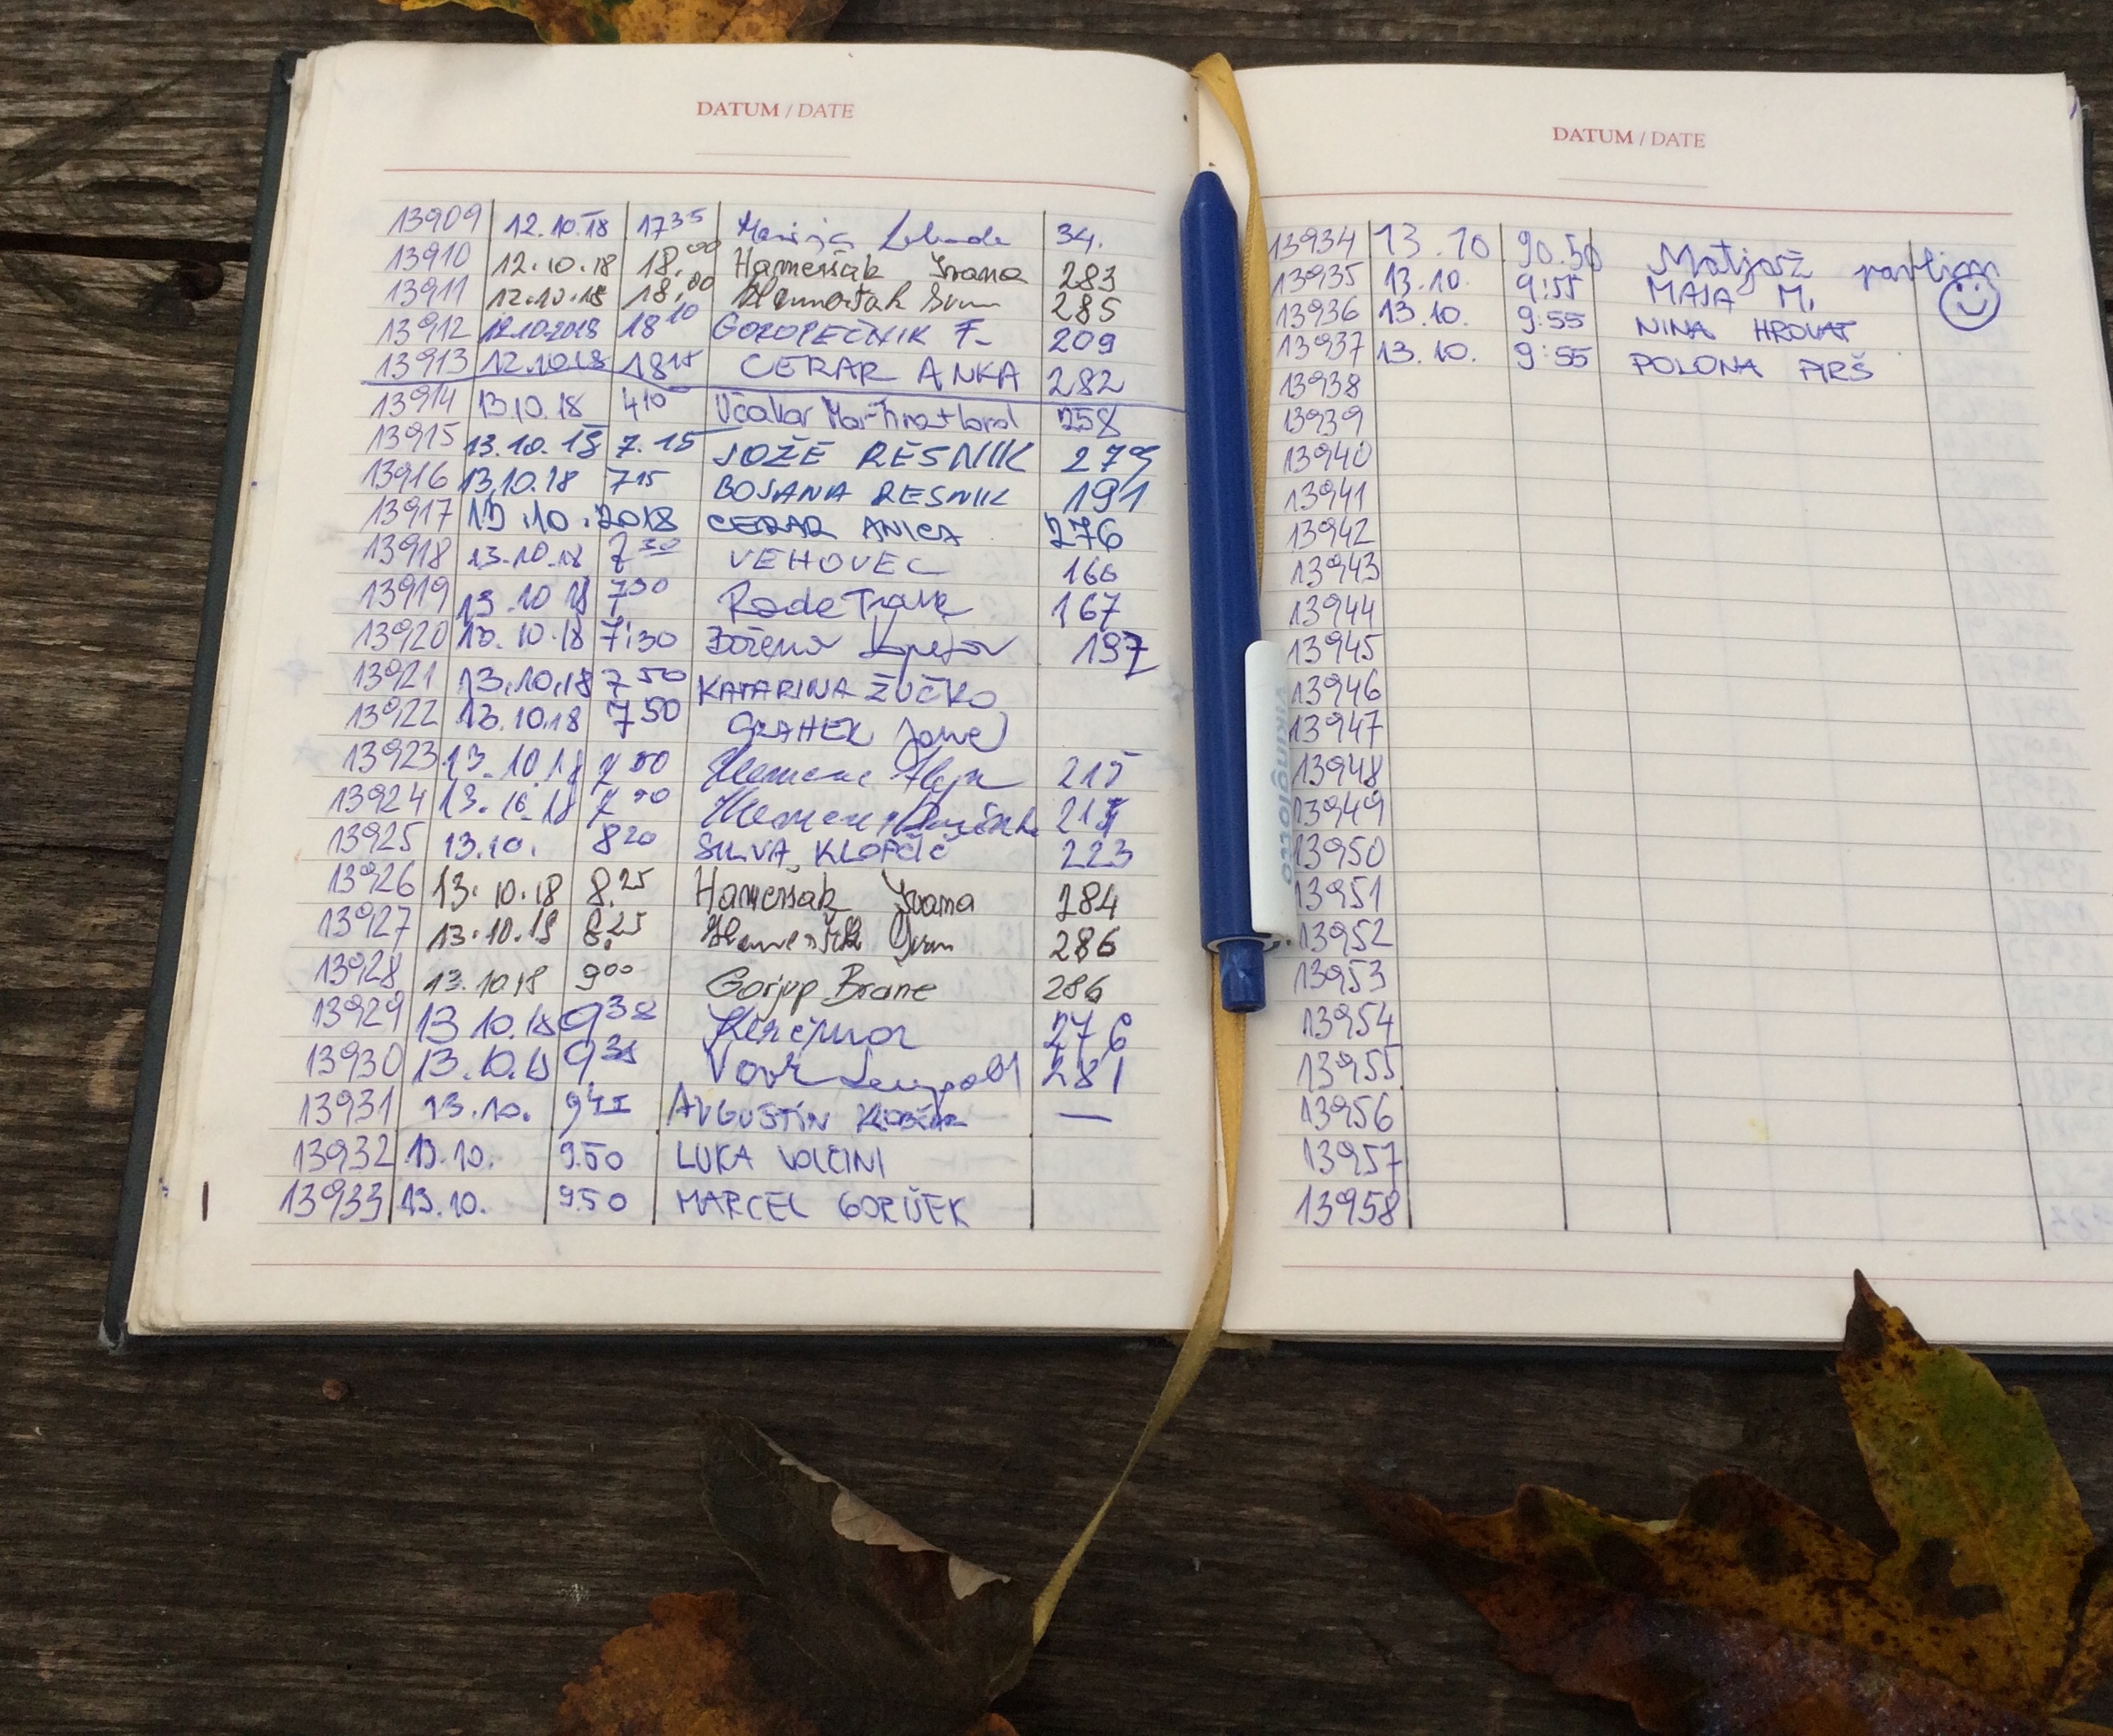 DATUM / DATE
13909 12.10.18 17 35 Marija 34.
13910 12.10.18 18.00 Hameršak Ivana 283
13911 12.10.18 18.00 285
13912 12.10.2018 18 10 GOROPEČNIK F. 209
13913 12.10.18 18 15 CERAR ANKA 282
13914 13.10.18 4 10 Učakar 258
13915 13.10.18 7.15 JOŽE RESNIK 279
13916 13.10.18 7 15 BOJANA RESNIK 191
13917 13.10.2018 CERAR ANICA 276
13918 13.10.18 7 30 VEHOVEC 166
13919 13.10.18 7 30 Rade 167
13920 13.10.18 7:30 Božena 197
13921 13.10.18 7 50 KATARINA ŽUČKO
13922 13.10.18 7 50 GRAHEK
13923 13.10.18 215
13924 13.10.18
13925 13.10. 8 20 SILVA KLOPČIČ 223
13926 13.10.18 8.25 Hameršak Ivana 284
13927 13.10.18 8.25 286
13928 13.10.18 9 00 Gorjup Brane 286
13929 13.10.18 9 38 276
13930 13.10.18 Vovk 281
13931 13.10. AVGUSTIN —
13932 13.10. 9.50 LUKA VOLČINI
13933 13.10. 9.50 MARCEL GORIŠEK
DATUM / DATE
13934 13.10 Matjaž
13935 13.10. 9:55 MAJA M.
13936 13.10. 9:55 NINA HROVAT
13937 13.10. 9:55 POLONA PIRŠ
13938
13939
13940
13941
13942
13943
13944
13945
13946
13947
13948
13949
13950
13951
13952
13953
13954
13955
13956
13957
13958